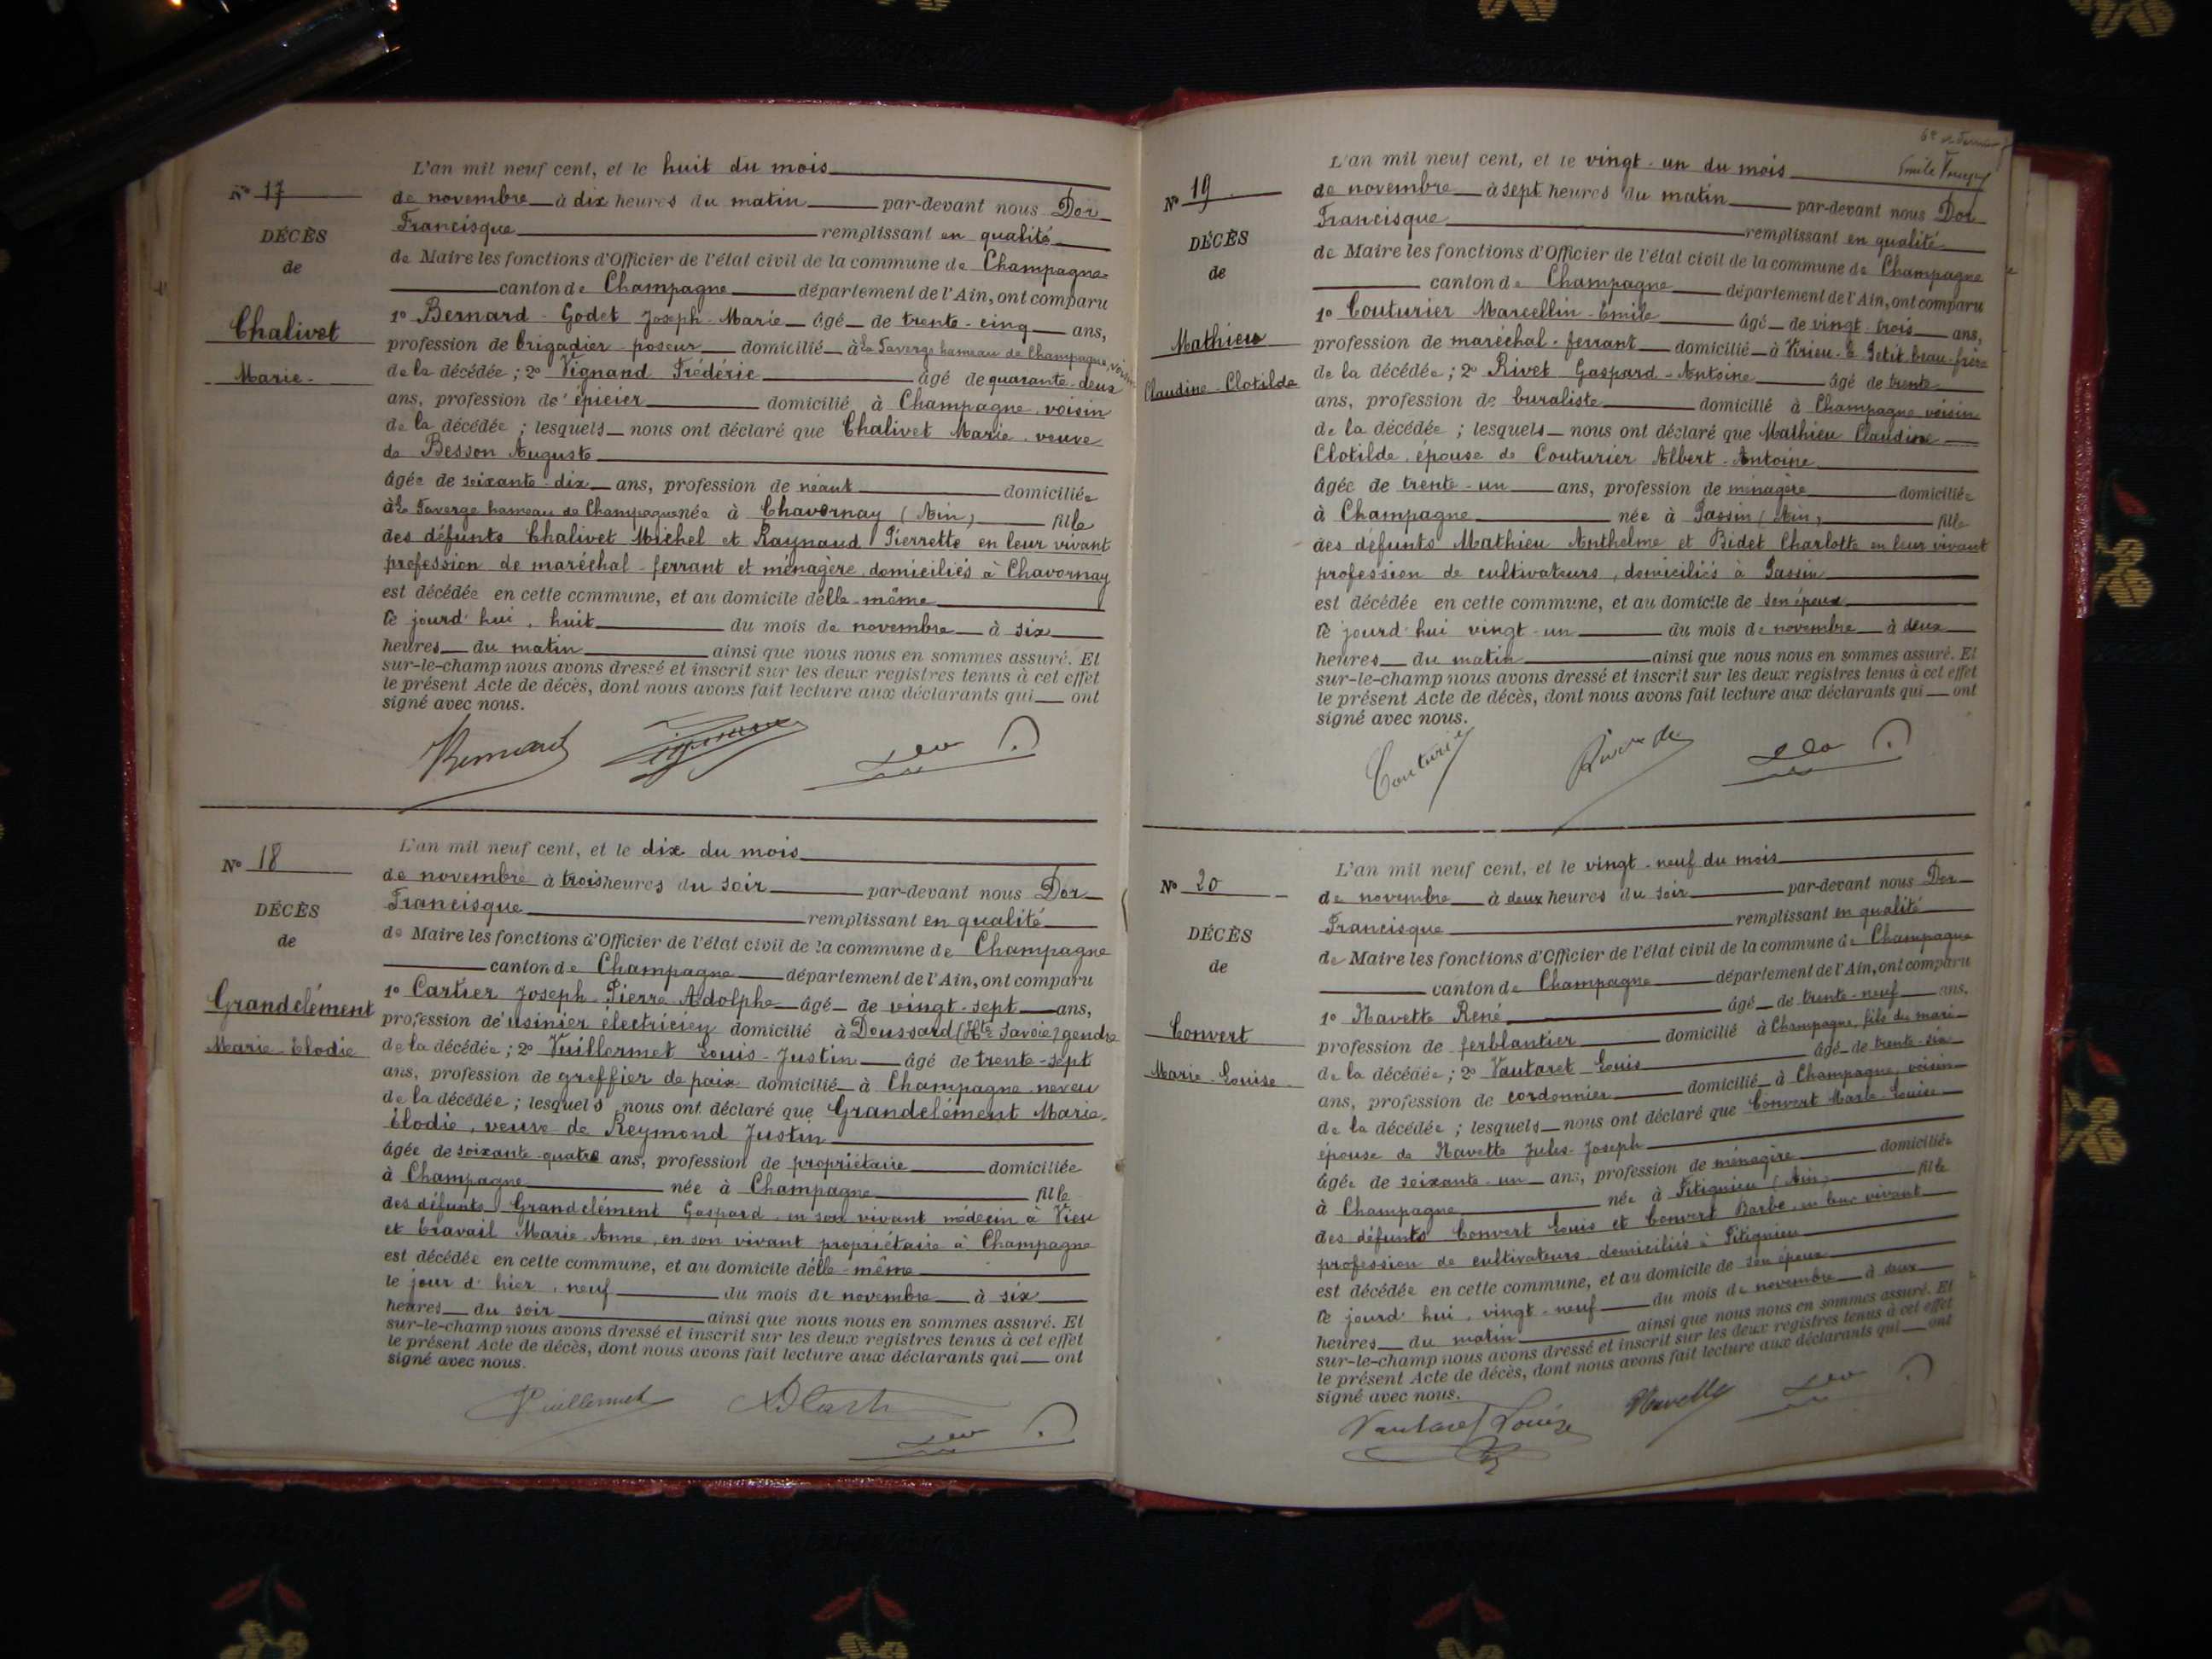 N° 17
DÉCÈS
de
Chalivet
Marie
L'an mil neuf cent, et le huit du mois
de novembre à dix heures du matin par-devant nous Dor
Francisque remplissant en qualité
de Maire les fonctions d'Officier de l'état civil de la commune de Champagne
canton de Champagne département de l'Ain, ont comparu
1° Bernard-Godet Joseph-Marie âgé de trente-cinq ans,
profession de brigadier poseur domicilié à la Taverge hameau de Champagne, voisin
de la décédée ; 2° Vignand Frédéric âgé de quarante-deux
ans, profession de épicier domicilié à Champagne, voisin
de la décédée ; lesquels nous ont déclaré que Chalivet Marie, veuve
de Besson Auguste
âgée de soixante-dix ans, profession de néant domiciliée
à la Taverge hameau de Champagne née à Chavornay (Ain) fille
des défunts Chalivet Michel et Raynaud Pierrette en leur vivant
profession de maréchal-ferrant et ménagère, domiciliés à Chavornay
est décédée en cette commune, et au domicile d'elle-même
le jourd'hui, huit du mois de novembre à six
heures du matin ainsi que nous nous en sommes assuré. Et
sur-le-champ nous avons dressé et inscrit sur les deux registres tenus à cet effet
le présent Acte de décès, dont nous avons fait lecture aux déclarants qui ont
signé avec nous.
Bernard
N° 18
DÉCÈS
de
Grandclément
Marie-Elodie
L'an mil neuf cent, et le dix du mois
de novembre à trois heures du soir par-devant nous Dor
Francisque remplissant en qualité
de Maire les fonctions d'Officier de l'état civil de la commune de Champagne
canton de Champagne département de l'Ain, ont comparu
1° Cartier Joseph-Pierre Adolphe âgé de vingt-sept ans,
profession de usinier électricien domicilié à Doussard (Hte Savoie) gendre
de la décédée ; 2° Vuillermet Louis-Justin âgé de trente-sept
ans, profession de greffier de paix domicilié à Champagne neveu
de la décédée ; lesquels nous ont déclaré que Grandclément Marie-
Elodie, veuve de Reymond Justin
âgée de soixante-quatre ans, profession de propriétaire domiciliée
à Champagne née à Champagne fille
des défunts Grandclément Gaspard en son vivant médecin à Vieu
et Travail Marie-Anne, en son vivant propriétaire à Champagne
est décédée en cette commune, et au domicile d'elle-même
le jour d'hier, neuf du mois de novembre à six
heures du soir ainsi que nous nous en sommes assuré. Et
sur-le-champ nous avons dressé et inscrit sur les deux registres tenus à cet effet
le présent Acte de décès, dont nous avons fait lecture aux déclarants qui ont
signé avec nous.
Vuillermet
N° 19
DÉCÈS
de
Mathieu
Claudine-Clotilde
L'an mil neuf cent, et le vingt-un du mois
de novembre à sept heures du matin par-devant nous Dor
Francisque remplissant en qualité
de Maire les fonctions d'Officier de l'état civil de la commune de Champagne
canton de Champagne département de l'Ain, ont comparu
1° Couturier Marcellin-Emile âgé de vingt-trois ans,
profession de maréchal-ferrant domicilié à Virieu-le-Petit beau-frère
de la décédée ; 2° Rivet Gaspard-Antoine âgé de trente
ans, profession de buraliste domicilié à Champagne voisin
de la décédée ; lesquels nous ont déclaré que Mathieu Claudine
Clotilde, épouse de Couturier Albert-Antoine
âgée de trente-un ans, profession de ménagère domiciliée
à Champagne née à Passin (Ain) fille
des défunts Mathieu Anthelme et Bidet Charlotte en leur vivant
profession de cultivateurs, domiciliés à Passin
est décédée en cette commune, et au domicile de son époux
le jourd'hui vingt-un du mois de novembre à deux
heures du matin ainsi que nous nous en sommes assuré. Et
sur-le-champ nous avons dressé et inscrit sur les deux registres tenus à cet effet
le présent Acte de décès, dont nous avons fait lecture aux déclarants qui ont
signé avec nous.
Couturier
N° 20
DÉCÈS
de
Convert
Marie-Louise
L'an mil neuf cent, et le vingt-neuf du mois
de novembre à deux heures du soir par-devant nous Dor
Francisque remplissant en qualité
de Maire les fonctions d'Officier de l'état civil de la commune de Champagne
canton de Champagne département de l'Ain, ont comparu
1° Navette René âgé de trente-neuf ans,
profession de ferblantier domicilié à Champagne, fils du mari
de la décédée ; 2° Vautaret Louis âgé de trente-six
ans, profession de cordonnier domicilié à Champagne, voisin
de la décédée ; lesquels nous ont déclaré que Convert Marie-Louise
épouse de Navette Jules-Joseph
âgée de soixante-un ans, profession de ménagère domiciliée
à Champagne née à Pitignieu (Ain) fille
des défunts Convert Louis et Convert Barbe, en leur vivant
profession de cultivateurs domiciliés à Pitignieu
est décédée en cette commune, et au domicile de son époux
le jourd'hui, vingt-neuf du mois de novembre à deux
heures du matin ainsi que nous nous en sommes assuré. Et
sur-le-champ nous avons dressé et inscrit sur les deux registres tenus à cet effet
le présent Acte de décès, dont nous avons fait lecture aux déclarants qui ont
signé avec nous.
Vautaret Louis Navette